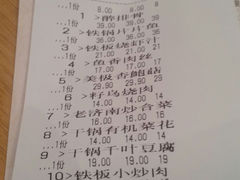 ...1份 8.00 8.00
1 >醉排骨
...1份 38.00 38.00
2 >铁锅片片鱼
...1份 35.00 35.00
3 >铁板烧虾汁
...1份 39.00 39.00
4 >鱼香肉丝
...1份 21.00 21.00
5 >美极香螺菇
...1份 17.00 17.00
6 >籽乌烧肉
...1份 14.00 14.00
7 >老济南炒合菜
...1份 16.90 16.90
8 >干锅有机菜花
...1份 14.00 14.00
9 >干锅千叶豆腐
...1份 19.00 19.00
10>铁板小炒肉